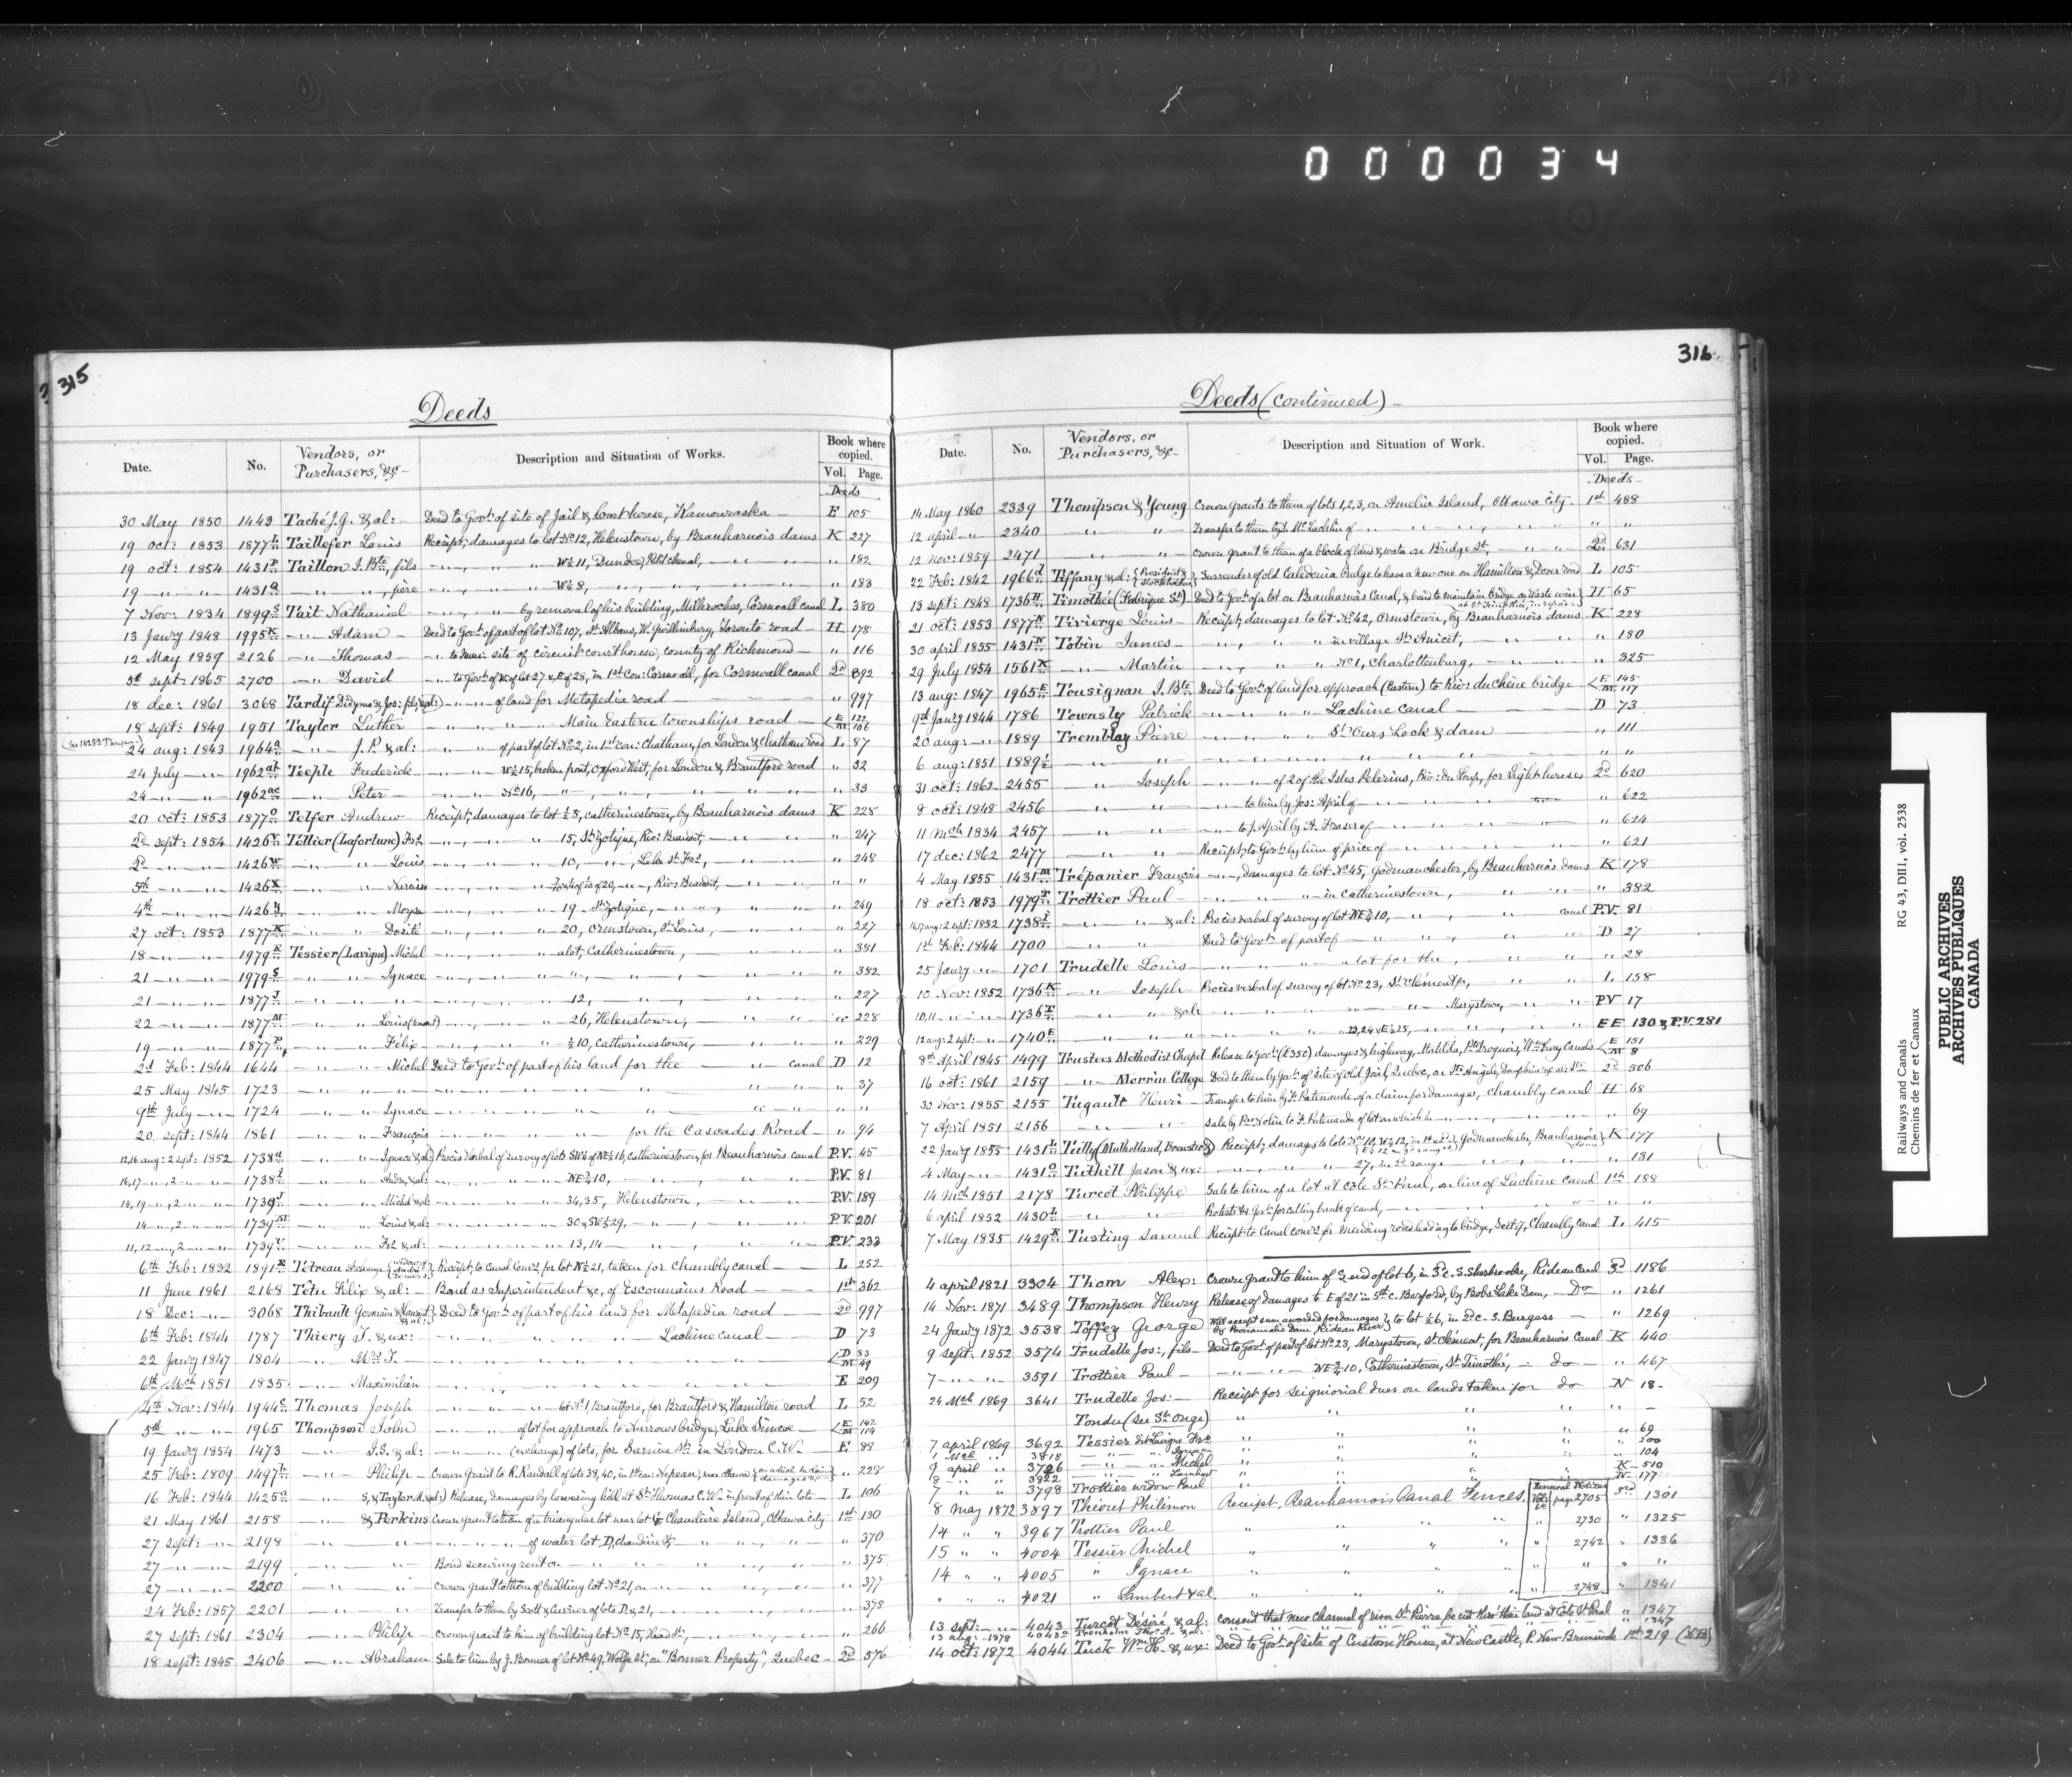 000034
315
Deeds
Date. No. Vendors, or Purchasers, &c- Description and Situation of Works. Book where copied. Vol. Page.
Deeds
30 May 1850 1443 Taché J. G. & al: - Deed to Govt. of site of Jail & Court house, Kamouraska - E 105
19 oct: 1853 1877 L Taillefer Louis Receipt; damages to lot No 12, Helenstown, by Beauharnois dams K 227
19 oct: 1854 1431 P Taillon J. Bte, fils - " - W½ 11, Dundee, Petit chenal, - " 182
19 - " - " 1431 Q - " - ", père - " - W½ 8, " - " 183
7 Nov: 1834 1899 S Tait Nathaniel - " - by removal of his building, Milleroches, Cornwall canal L 380
13 Janry 1848 1995 K - " - Adam - Deed to Govt. of part of lot No 107, St. Albans, W. Gwillimbury, Toronto road - H 178
12 May 1859 2126 - " - Thomas - " to Muni: site of circuit court house, county of Richmond - " 116
5th sept: 1865 2700 - " - David - " to Govt. of W. of lot 27 & E of 28, in 1st Con: Cornwall, for Cornwall canal 2d 892
18 dec: 1861 3068 Tardif Didyme & Jos: fils, & al:) - " - of land for Metapedia road - " 997
18 sept: 1849 1951 Taylor Luther - " - Main Eastern townships road - E 122 M 106
24 aug: 1843 1964 a - " - J. P. & al: - " - of part of lot No 2, in 1st con: Chatham, for London & Chatham road L 87
24 July - " - 1962 ab Teeple Frederick - " - W½ 15, broken front, Oxford West, for London & Brantford road " 32
24 - " - " 1962 ac - " - Peter - " - No 16, - " - " 33
20 oct: 1853 1877 O Telfer Andrew - Receipt; damages to lot ½ 5, Catherinestown, by Beauharnois dams K 228
2d sept: 1854 1426 V Tellier (Lafortune) Frs - " - 15, St. Zotique, Riv: Beaudet, - " 247
2d - " - 1426 W - " - Louis - " - 10, - ", Lake St. Frs, - " 248
5th - " - 1426 X - " - Narcisse - " - of 20, - " -, Riv: Beaudet, - " "
4th - " - 1426 Y - " - Moyse - " - 19 - St. Zotique, - " 249
27 oct: 1853 1877 K - " - Dosité - " - 20, Ormstown, St. Louis, - " 227
18 - " - 1979 R Tessier (Lavigne) Michel - " - a lot, Catherinestown, - " 381
21 - " - 1979 S - " - Ignace - " - " 382
21 - " - 1877 J - " - 12, - " 227
22 - " - 1877 M - " - Louis - " - 26, Helenstown, - " 228
19 - " - 1877 P - " - Félix - " - ½ 10, Catherinestown, - " 229
2d Feb: 1844 1644 - " - Michel Deed to Govt. of part of his land for the - " canal D 12
25 May 1845 1723 - " - " 37
9th July - " - 1724 - " - Ignace - " - " "
20 sept: 1844 1861 - " - François - " - for the Cascades Road - " 94
12,16 aug: 2 sept: 1852 1738 a - " - Ignace & al: Procès Verbal of survey of lots SW½ of NE½ 16, Catherinestown, for Beauharnois canal P.V. 45
16,17 - ", 2 - " 1738 i - " - Andre, & al: - " - NE¾ 10, - " P.V. 81
14,19 - ", 2 - " 1739 J - " - Michel & al: - " - 34, 35, Helenstown, - " P.V. 189
14 - ", 2 - " 1739 M - " - Louis & al: - " - 30 & SW½ 29, - " P.V. 201
11,12 - ", 2 - " 1739 U - " - Frs & al: - " - 13, 14 - " P.V. 233
6th Feb: 1832 1891 R Tétreau Archange Receipt, to Canal Comrs for lot N½ 21, taken for Chambly canal - L 252
11 June 1861 2168 Tétu Félix & al: - Bond as Superintendent &c, of Escoumains Road - 1st 362
18 Dec: - " - 3068 Thibault Germain & Laurent & al: Deed to Govt. of part of his land for Metapedia road - 2d 997
6th Feb: 1844 1787 Thiery T. & ux: - " - Lachine canal - D 73
22 Janry 1847 1804 - " - Mrs T. - " - D 83 M 49
6th Mch 1851 1835 - " - Maximilien - " - E 209
4th Nov: 1844 1944 C Thomas Joseph - " - lot No 1, Brantford, for Brantford & Hamilton road L 52
5th - " - 1965 Thompson John - " - of lot for approach to Narrows bridge, Lake Simcoe - E 142 M 114
19 Janry 1854 1473 - " - J. S. & al: - " - (exchange) of lots, for Sarnia St. in London C. W. - E 88
25 Feb: 1809 1497 b - " - Philip - Crown Grant to R. Randall of lots 38, 40, in 1st con: Nepean, near Ottawa (on which he claims damages &c) " 228
16 Feb: 1844 1425 a - " - S. & Taylor M. & al:) Release, damages by lowering hill at St. Thomas C. W. in front of their lots - L 106
21 May 1861 2158 - " - & Perkins Crown grant to them of a triangular lot near lot G, Chaudiere Island, Ottawa city 1st 130
27 sept: - " 2198 - " - of water lot D, chaudière St. - " 370
27 - " - 2199 - " - Bond securing rent on - " 375
27 - " - 2200 - " - Crown grant to them of building lot No 21, on - " 377
24 Feb: 1857 2201 - " - Transfer to them by Scott & Cursier of lots D. & 21, - " 378
27 sept: 1861 2304 - " - Philip - crown grant to him of building lot No 15, Head St., - " 266
18 sept: 1845 2406 - " - Abraham Sale to him by J. Bonner of lot No 49, Wolfe St., on "Bonner Property", Quebec - 2d 576
316
Deeds (continued) -
Date. No. Vendors, or Purchasers, &c- Description and Situation of Work. Book where copied. Vol. Page.
Deeds -
14 May 1860 2339 Thompson & Young Crown Grants to them of lots 1, 2, 3, on Amelia Island, Ottawa city - 1st 488
12 april - " 2340 - " - Transfer to them by D. McLachlin of - " " "
12 Nov: 1859 2471 - " - crown grant to them of a block of land & water on Bridge St., - " 2d 631
22 Feb: 1842 1966 d Tiffany & al: (President & Stockholders) Surrender of old Caledonia bridge to have a new one on Hamilton & Dover road L 105
13 sept: 1848 1736 H Timothée (Fabrique St.) Deed to Govt. of a lot on Beauharnois Canal, & bond to maintain bridge on Waste weir at St. Timothée, in repair H 65
21 oct: 1853 1877 N Tivierge Louis - Receipt; damages to lot No 42, Ormstown, by Beauharnois dams K 228
30 april 1855 1431 N Tobin James - " - in village St. Anicet, - " 180
29 July 1854 1561 K - " - Martin - " - No 1, Charlottenburg, - " 325
13 aug: 1847 1965 E Tousignan J. Bte Deed to Govt. of land for approach (Eastern) to Riv: du chêne bridge E 145 M 117
9th Janry 1844 1786 Townsly Patrick - " - Lachine Canal - D 73
20 aug: - " 1889 Tremblay Pierre - " - St. Ours Lock & dam - " 111
6 aug: 1851 1889 ½ - " - " "
31 oct: 1862 2455 - " Joseph - " - of 2 of the Isles Pelerins, Riv: du Loup, for Light houses 2d 620
8 oct: 1848 2456 - " - to him by Jos: April of - " 622
11 Mch 1834 2457 - " - to J. April by A. Fraser of - " 624
17 dec: 1862 2477 - " - Receipt, to Govt. by him of price of - " 621
4 May 1855 1431 M Trépanier François - ", damages to lot No 45, Godmanchester, by Beauharnois dams K 178
18 oct: 1853 1979 T Trottier Paul - " - in Catherinestown, - " 382
16,17 aug: 2 sept: 1852 1738 I - " & al: Procès verbal of survey of lot NE¾ 10, - " canal P.V. 81
1st Feb: 1844 1700 - " - Deed to Govt. of part of - " D 27
25 Janry - " 1701 Trudelle Louis - " - a lot for the, - " 28
10 Nov: 1852 1736 K - " - Joseph - Procès verbal of survey of lot No 23, St. Clément p., - " L 158
10, 11 - " 1736 T - " & al: - " - Marystown, - " P.V 17
12 aug: 2 sept: - " 1740 E - " - 23, 24 & E½ 25, - " EE 130 & P.V. 281
8th April 1845 1499 Trustees Methodist Chapel Release to Govt. (£350) damages & highway, Matilda, Pte Iroquois, Wmsburg Canals E 151 M 8
16 oct: 1861 2159 - " - Morrin College Deed to them by Govt. of site of old Jail, Quebec, on St. Angèle, Dauphin & al: Sts 2d 506
30 Nov: 1855 2155 Tugault Henri - Transfer to him by F. Patenaude of a claim for damages, chambly canal H 68
7 April 1851 2156 - " - Sale by Pre Nolin to F. Patenaude of lot on which is - " 69
22 Janry 1855 1431 L Tully (Mulholland, Brewster &) Receipt; damages to lots No 10, W½ 12, in 1st & E½ 12 in 3d range, Godmanchester, Beauharnois dams K 177
4 May - " 1431 O Tuthill Jason & ux: - " - 27, in 2d range - " 181
14 Mch 1851 2178 Turcot Philippe Sale to him of a lot at Cote St. Paul, on line of Lachine canal 1st 188
6 april 1852 1430 L - " - Protests to Govt. for cutting bank of canal, - " "
7 May 1835 1429 K Tusting Samuel Receipt to Canal Comrs for mending road leading to bridge, Sect: 7, Chambly Canal L 415
4 april 1821 3304 Thom Alex: Crown grant to him of ½ end of lot 6, in 3d c. S. Sherbrooke, Rideau Canal 3d 1186
14 Nov: 1871 3489 Thompson Henry Release of damages to E of 21 in 5th c. Bexford, by Bobs Lake Dam, - Do - " 1261
24 Janry 1872 3538 Toffey George Will accept sum awarded for damages by Poonamalie Dam, Rideau River to lot ½ 6, in 2d c. S. Burgess - " 1269
9 sept: 1852 3574 Trudelle Jos:, fils - Deed to Govt. of part of lot No 23, Marystown, St. Clément, for Beauharnois Canal K 440
7 - " - 3591 Trottier Paul - " - NE¾ 10, Catherinestown, St. Timothée, - do - " 467
24 Mch 1869 3641 Trudelle Jos: - Receipt for seigniorial dues on lands taken for do N 18 -
Tondu (see St. Onge) " " " -
7 april 1869 3692 Tessier dit Lavigne Frs " " " 69
1 Mch " 3818 - " - Ignace " " 200
9 april " 3726 - " - Michel " " 104
8 - " " 3822 - " - Lambert " K - 510
7 " " 3798 Trottier widow Paul " N - 177
8 May 1872 3897 Théoret Philémon Receipt, Beauharnois Canal Fences. Removal Notices Vol: 6th page 2705 3rd 1301
14 " " 3967 Trottier Paul " " " " 2730 " 1325
15 " " 4004 Tessier Michel " " " " 2742 " 1336
14 " " 4005 " Ignace " " " " " " "
" " " 4021 " Lambert & al " " " " 2748 " 1341
13 sept: - " 4043 Turcot Désiré & al: consent that new channel of river St. Pierre, be cut thro' their land at Cote St. Paul " 1347
13 aug: 1878 4043 a Trenholm Thos A. & al: " " 1347
14 oct: 1872 4044 Tuck Wm H. & ux: Deed to Govt. of site of Custom House, at New Castle, P. New Brunswick 1st 219 (N.B.)
Railways and Canals RG 43, DIII, vol. 2538
Chemins de fer et Canaux
PUBLIC ARCHIVES
ARCHIVES PUBLIQUES
CANADA